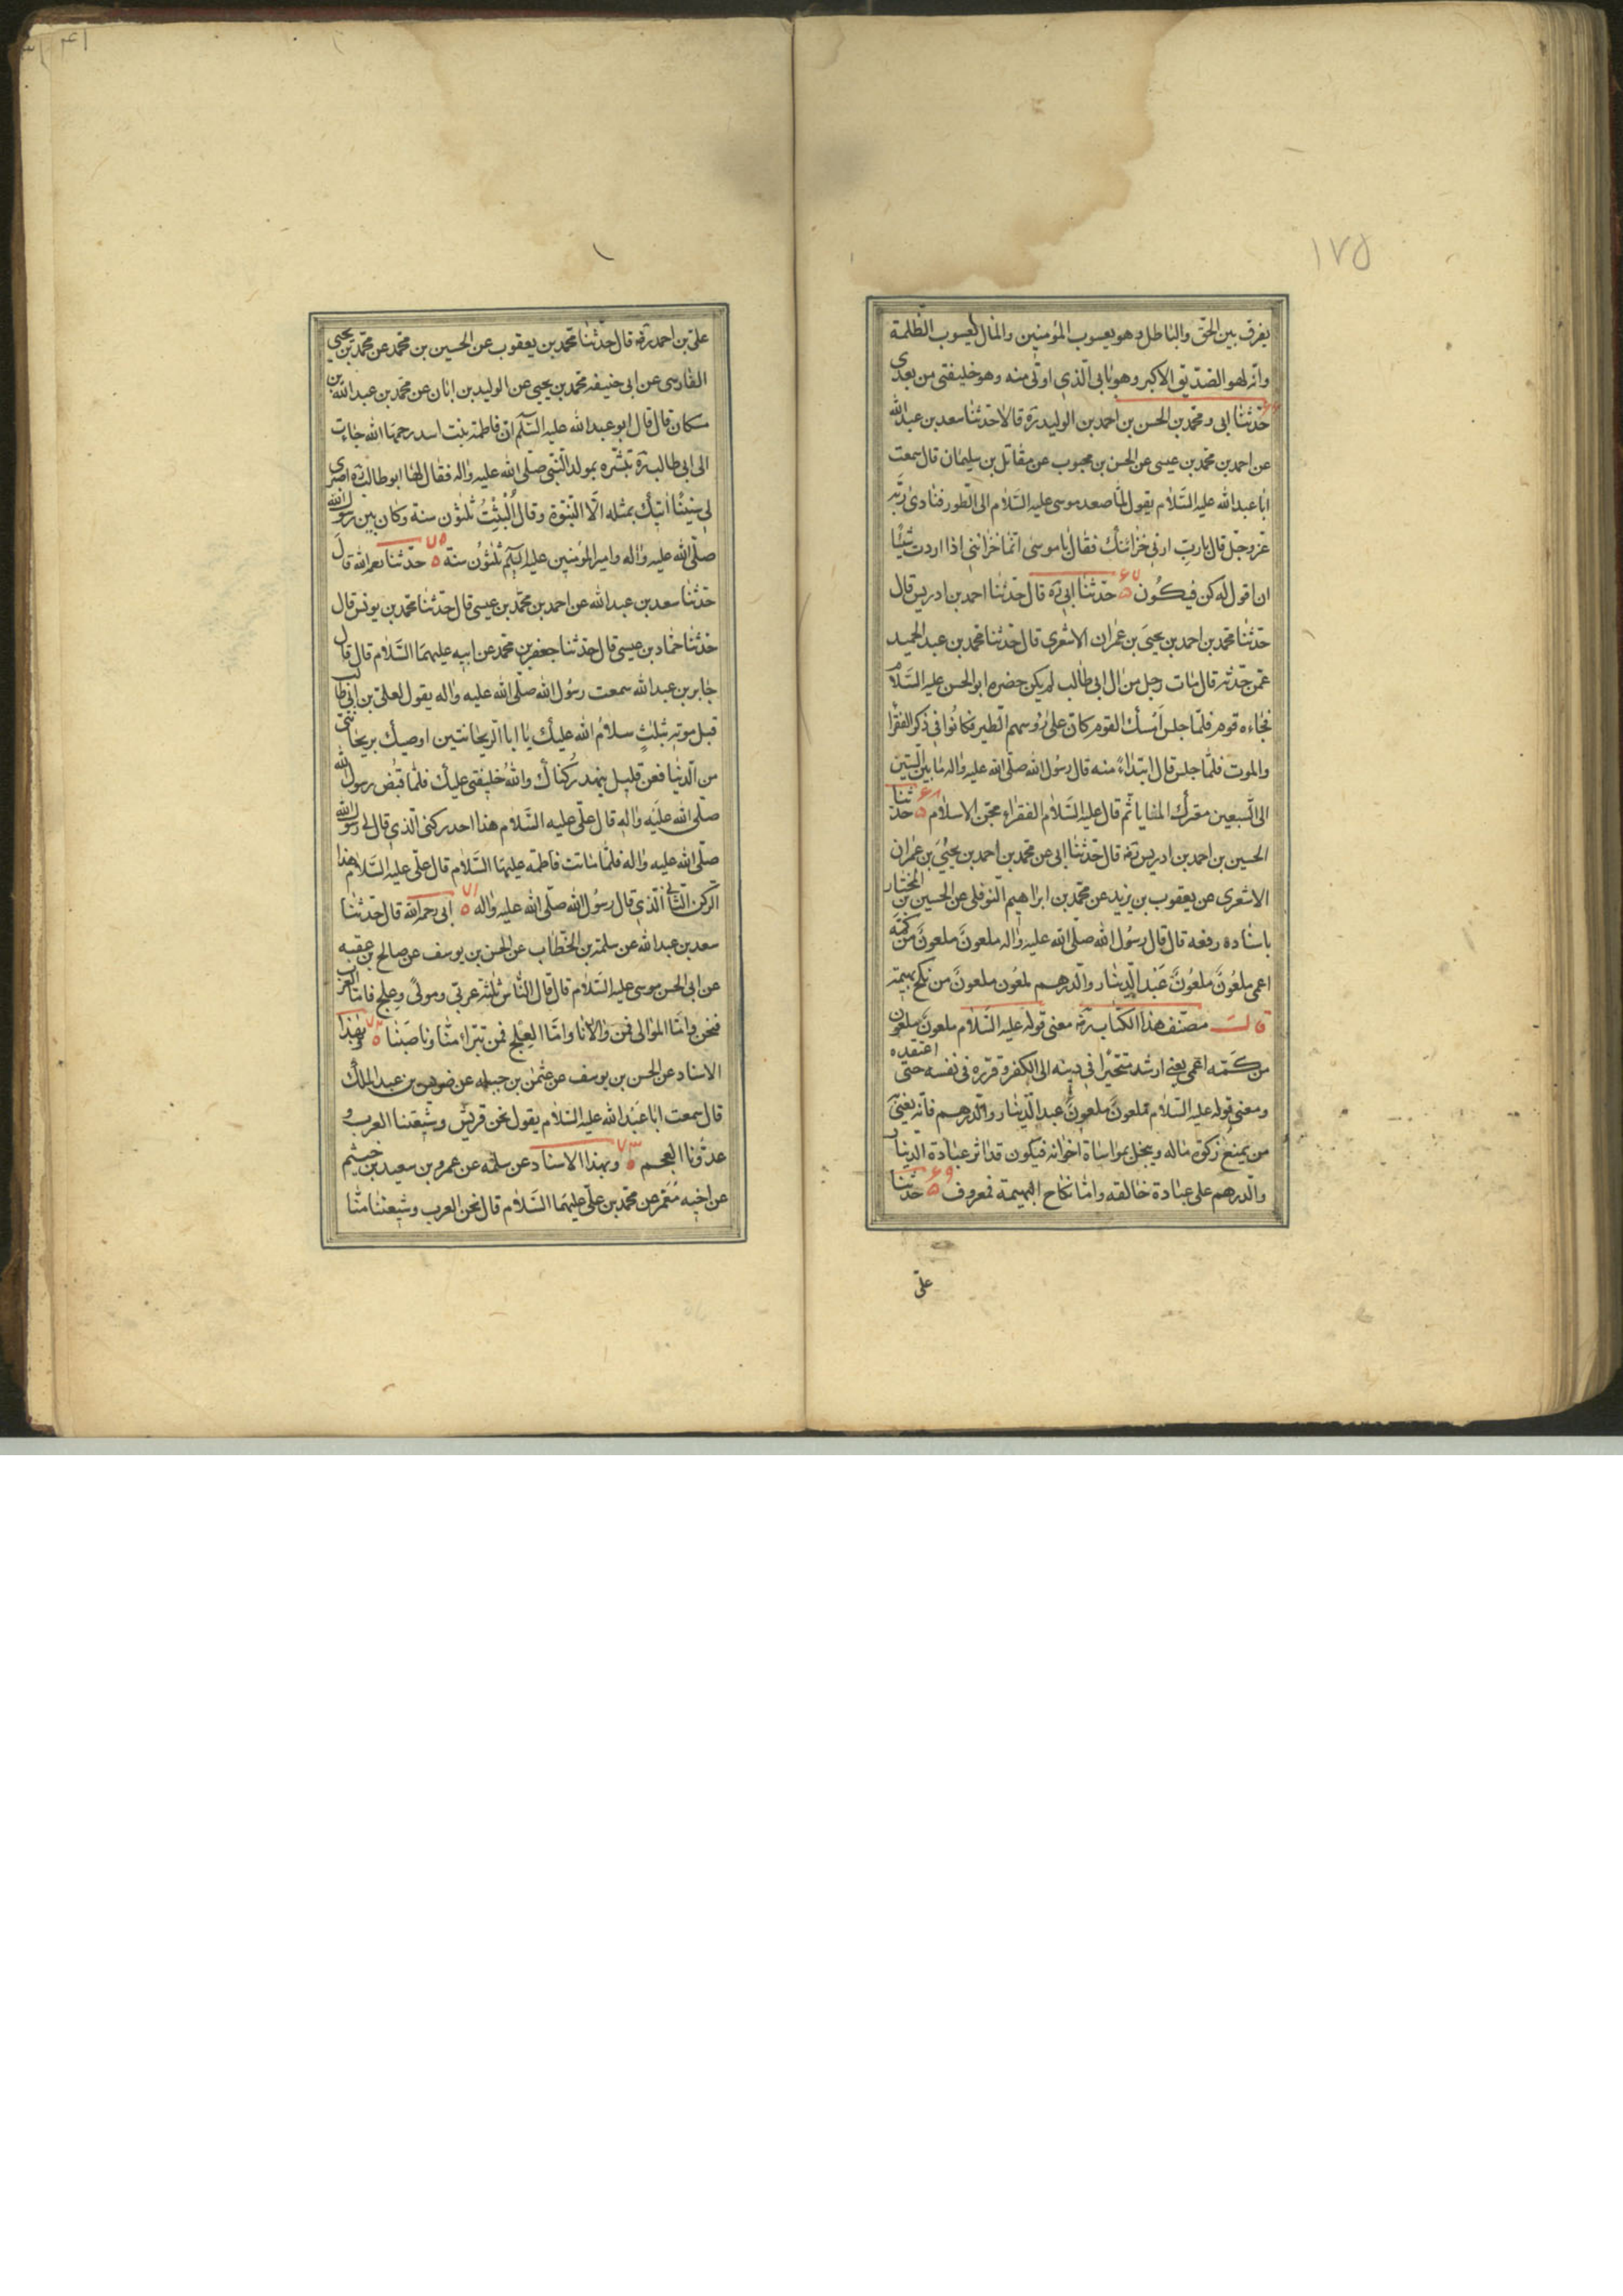 ١٧٥
يفرق بين الحق والباطل وهو يعسوب المؤمنين والمال يعسوب الظلمة
وانه لهو الصديق الاكبر وهو بابي الذي اوتى منه وهو خليفتي من بعدي
٦٦ حدثنا ابي ومحمد بن الحسن بن احمد بن الوليد ره قالا حدثنا سعد بن عبد الله
عن احمد بن محمد بن عيسى عن الحسن بن محبوب عن مقاتل بن سليمان قال سمعت
ابا عبد الله عليه السلام يقول لما صعد موسى عليه السلام الى الطور فنادى ربه
عز وجل قال يا رب ارني خزائنك فقال يا موسى انما خزائني اذا اردت شيئا
ان اقول له كن فيكون ٦٧ حدثنا ابي ره قال حدثنا احمد بن ادريس قال
حدثنا محمد بن احمد بن يحيى بن عمران الاشعري قال حدثنا محمد بن عبد الحميد
عمن حدثه قال مات رجل من ال ابي طالب لم يكن حضره ابو الحسن عليه السلام
فجاءه قوم فلما جلس امسك القوم كان على رؤسهم الطير فكانوا في ذكر الفقرا
والموت فلما جلس قال ابتداء منه قال رسول الله صلى الله عليه واله ما بين الستين
الى السبعين معترك المنايا ثم قال عليه السلام الفقراء محن الاسلام ٦٨ حدثنا
الحسين بن احمد بن ادريس ره قال حدثنا ابي عن محمد بن احمد بن يحيى بن عمران
الاشعري عن يعقوب بن يزيد عن محمد بن ابراهيم النوفلي عن الحسين بن المختار
باسناده رفعه قال قال رسول الله صلى الله عليه واله ملعون ملعون من كمه
اعمى ملعون ملعون عبد الدينار والدرهم ملعون ملعون من نكح بهيمة
قال مصنف هذا الكتاب ره معنى قوله عليه السلام ملعون ملعون
من كمه اعمى يعني ارشد متحيرا في دينه الى الكفر وقرره في نفسه حتى اعتقده
ومعنى قوله عليه السلام ملعون ملعون عبد الدينار والدرهم فانه يعني
من يمنع زكوة ماله ويبخل بمواساة اخوانه فيكون قد اثر عبادة الدينار
والدرهم على عبادة خالقه واما نكاح البهيمة فمعروف ٦٩ حدثنا
على
علي بن احمد ره قال حدثنا محمد بن يعقوب عن الحسين بن محمد عن محمد بن يحيى
الفارسي عن ابي حنيفه محمد بن يحيى عن الوليد بن ابان عن محمد بن عبد الله بن
مسكان قال قال ابو عبد الله عليه السلم ان فاطمة بنت اسد رحمها الله جاءت
الى ابي طالب ره تبشره بمولد النبي صلى الله عليه واله فقال لها ابو طالب ره اصبري
لي سبتا اتيك بمثله الا النبوة وقال السبت ثلثون سنة وكان بين رسول الله
صلى الله عليه واله وامير المؤمنين عليه السلم ثلثون سنة ٧٥ حدثنا رحمه الله قال
حدثنا سعد بن عبد الله عن احمد بن محمد بن عيسى قال حدثنا محمد بن يونس قال
حدثنا حماد بن عيسى قال حدثنا جعفر بن محمد عن ابيه عليهما السلام قال قال
جابر بن عبد الله سمعت رسول الله صلى الله عليه واله يقول لعلي بن ابي طالب
قبل موته بثلث سلام الله عليك يا ابا الريحانتين اوصيك بريحانتي
من الدنيا فعن قليل ينهد ركناك والله خليفتي عليك فلما قبض رسول الله
صلى الله عليه واله قال علي عليه السلام هذا احد ركني الذي قال لي رسول الله
صلى الله عليه واله فلما ماتت فاطمة عليها السلام قال علي عليه السلام هذا
الركن الثاني الذي قال رسول الله صلى الله عليه واله ٧١ ابي رحمه الله قال حدثنا
سعد بن عبد الله عن سلمة بن الخطاب عن الحسن بن يوسف عن صالح بن عقبه
عن ابي الحسن موسى عليه السلام قال قال الناس ثلثة عربي ومولى وعلج فاما العرب
فنحن واما الموالى فمن والانا واما العلج فمن تبرا منا وناصبنا ٧٢ وبهذا
الاسناد عن الحسن بن يوسف عن عثمن بن جبله عن ضريس بن عبد الملك
قال سمعت ابا عبد الله عليه السلام يقول نحن قريش وشيعتنا العرب و
عدونا العجم ٧٣ وبهذا الاسناد عن سلمه عن عمرو بن سعيد بن خيثم
عن اخيه معمر عن محمد بن علي عليهما السلام قال نحن العرب وشيعتنا منا